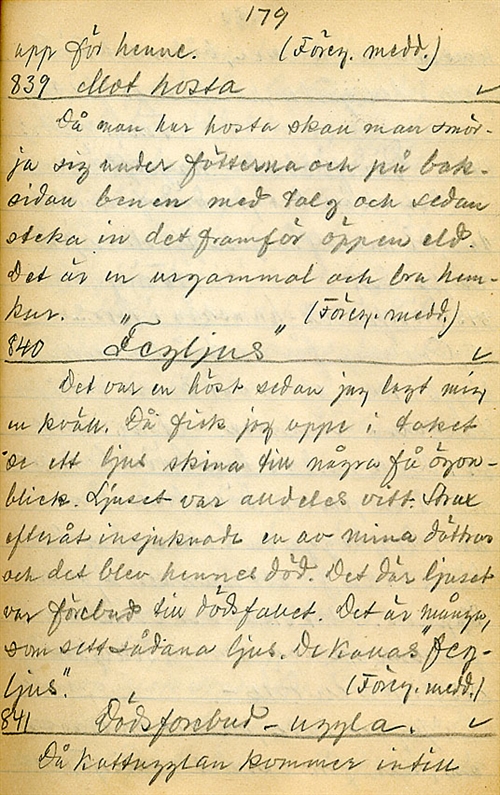 179
upp för henne. (Föreg. medd.)
839 Mot hosta ✓
Då man har hosta skall man smör-
ja sig under fötterna och på bak-
sidan benen med talg och sedan
steka in det framför öppen eld.
Det är en urgammal och bra hem-
kur. (Föreg. medd.)
840 "Fegljus" ✓
Det var en höst sedan jag lagt mig
en kväll. Då fick jag uppe i taket
se ett ljus skina till några få ögon-
blick. Ljuset var alldeles vitt. Strax
efteråt insjuknade en av mina döttrar
och det blev hennes död. Det där ljuset
var förebud till dödsfallet. Det är många,
som sett sådana ljus. De kallas "feg-
ljus". (Föreg. medd.)
841 Dödsförebud - uggla. ✓
Då kattugglan kommer intill